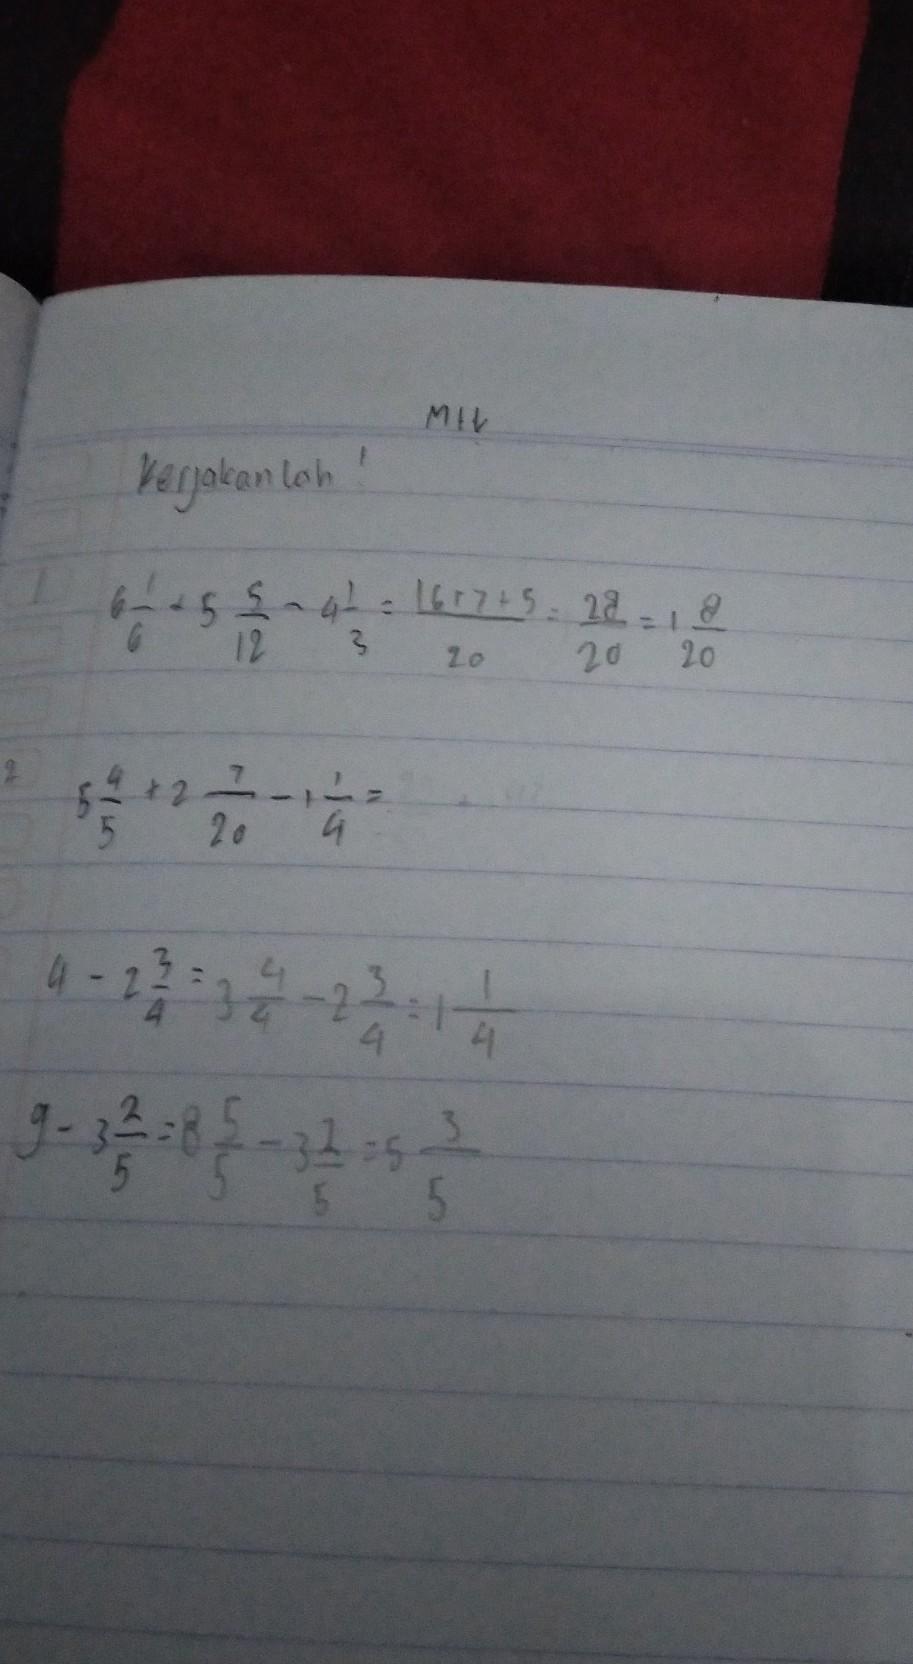 MTK
Kerjakanlah !
1 6 1/6 + 5 5/12 - 4 1/3 = 16+7+5/20 = 28/20 = 1 8/20
2 5 4/5 + 2 7/20 - 1 1/4 =
4 - 2 3/4 = 3 4/4 - 2 3/4 = 1 1/4
9 - 3 2/5 = 8 5/5 - 3 2/5 = 5 3/5